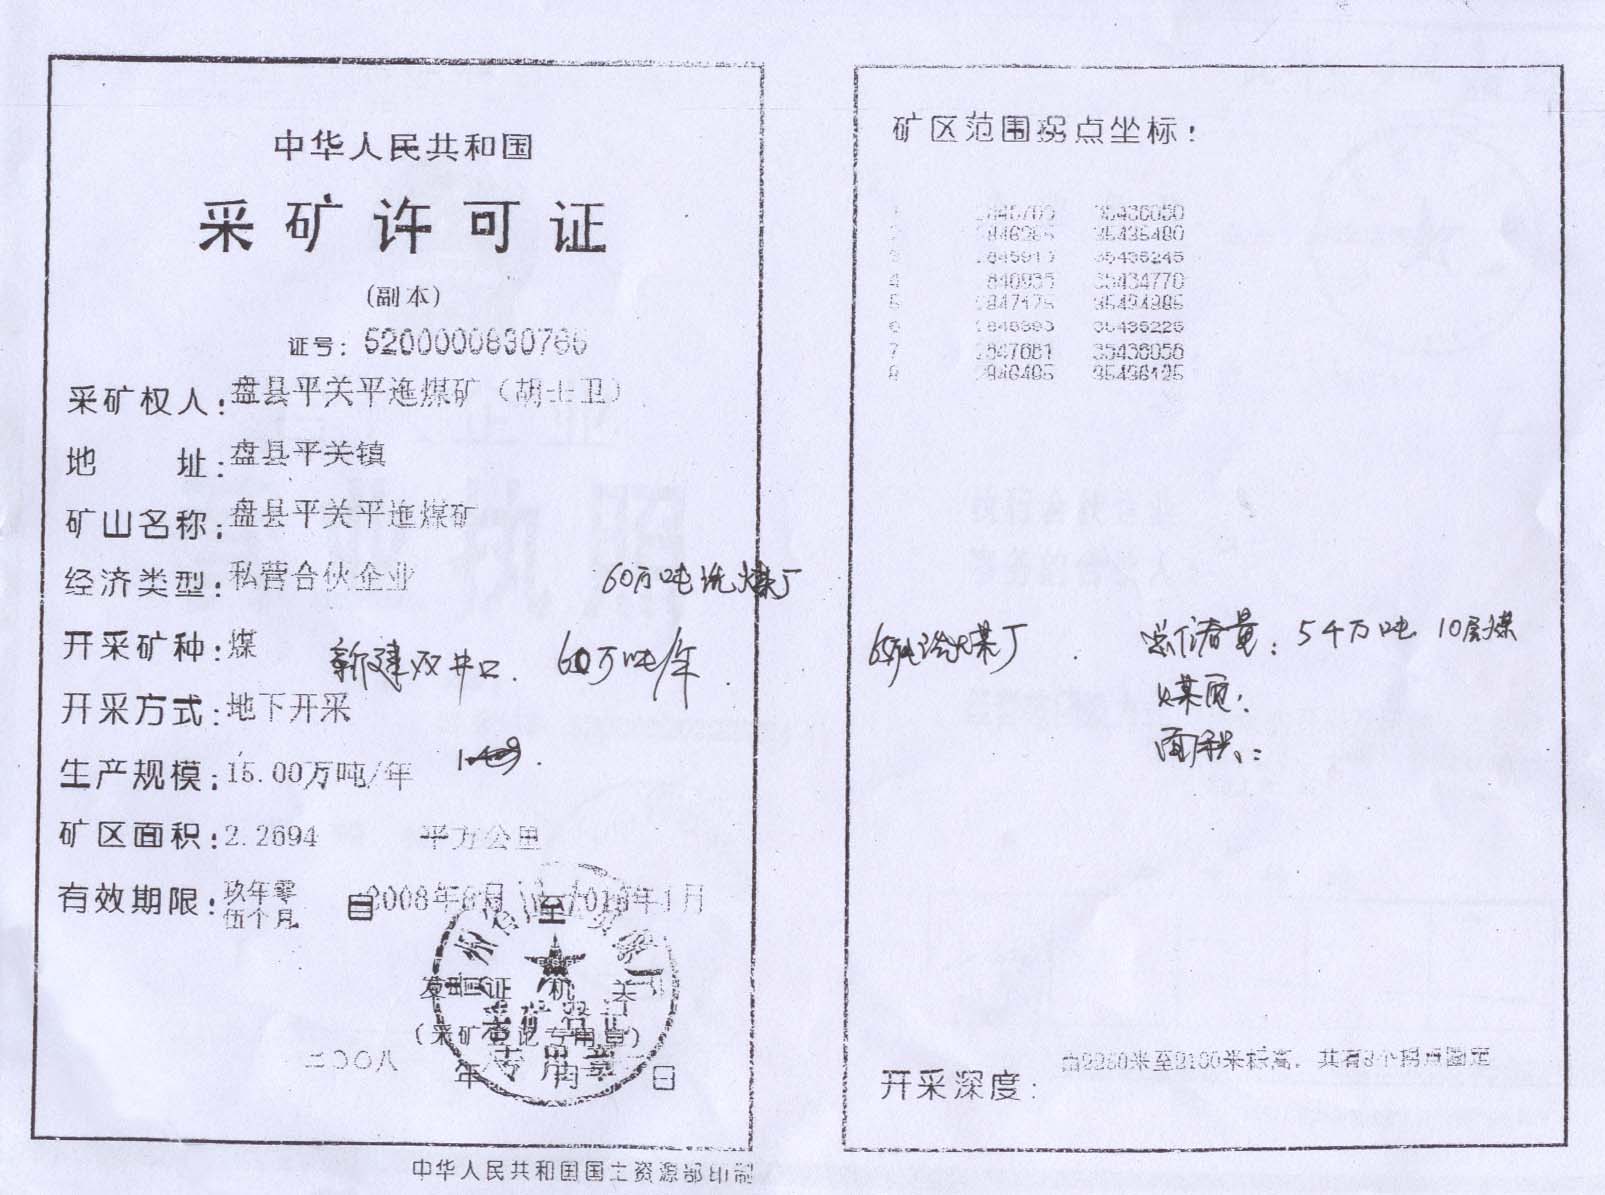 中华人民共和国
采矿许可证
(副本)
证号：5200000830766
采矿权人：盘县平关平迤煤矿（胡士卫）
地 址：盘县平关镇
矿山名称：盘县平关平迤煤矿
经济类型：私营合伙企业
60万吨洗煤厂
开采矿种：煤
新建双井口. 60万吨/年
开采方式：地下开采
生产规模：15.00万吨/年
矿区面积：2.2694 平方公里
有效期限：玖年零伍个月 自2008年8月至2018年1月
发证机关
(采矿登记专用章)
二〇〇八 年 月 日
采矿登记
专用章
中华人民共和国国土资源部印制
矿区范围拐点坐标：
1 35436050
2 35435480
3 35435245
4 35434770
5 2847175
6 35435225
7 2847681 35436056
8 2846495 35436125
洗煤厂
总储量：5千万吨 10层煤
煤质：
面积：
开采深度：由2260米至2100米标高，共有8个拐点圈定